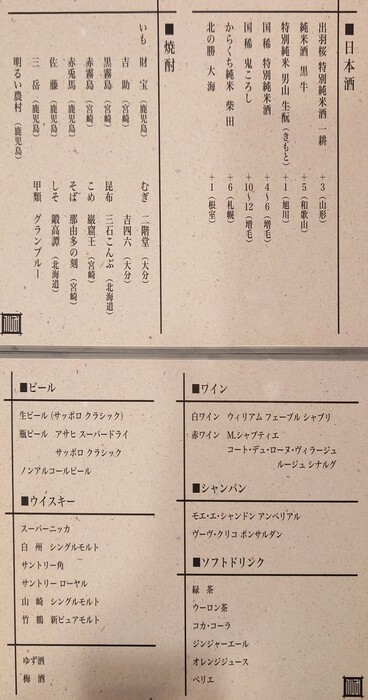 ■日本酒
出羽桜 特別純米酒 一耕 +3(山形)
純米酒 黒牛 +5(和歌山)
特別純米 男山 生酛(きもと) +1(旭川)
国稀 特別純米酒 +4~6(増毛)
国稀 鬼ころし +10~12(増毛)
からくち純米 柴田 +6(札幌)
北の勝 大海 +1(根室)
■焼酎
いも 財宝(鹿児島)
吉助(宮崎)
黒霧島(宮崎)
赤霧島(宮崎)
赤兎馬(鹿児島)
佐藤(鹿児島)
三岳(鹿児島)
明るい農村(鹿児島)
むぎ 二階堂(大分)
吉四六(大分)
昆布 三石こんぶ(北海道)
こめ 巌窟王(宮崎)
そば 那由多の刻(宮崎)
しそ 鍛高譚(北海道)
甲類 グランブルー
■ビール
生ビール(サッポロ クラシック)
瓶ビール アサヒ スーパードライ
サッポロ クラシック
ノンアルコールビール
■ウイスキー
スーパーニッカ
白州 シングルモルト
サントリー角
サントリー ローヤル
山崎 シングルモルト
竹鶴 新ピュアモルト
ゆず酒
梅酒
■ワイン
白ワイン ウィリアム フェーブル シャブリ
赤ワイン M.シャプティエ
コート・デュ・ローヌ・ヴィラージュ
ルージュ シナルグ
■シャンパン
モエ・エ・シャンドン アンペリアル
ヴーヴ・クリコ ポンサルダン
■ソフトドリンク
緑茶
ウーロン茶
コカ・コーラ
ジンジャーエール
オレンジジュース
ペリエ